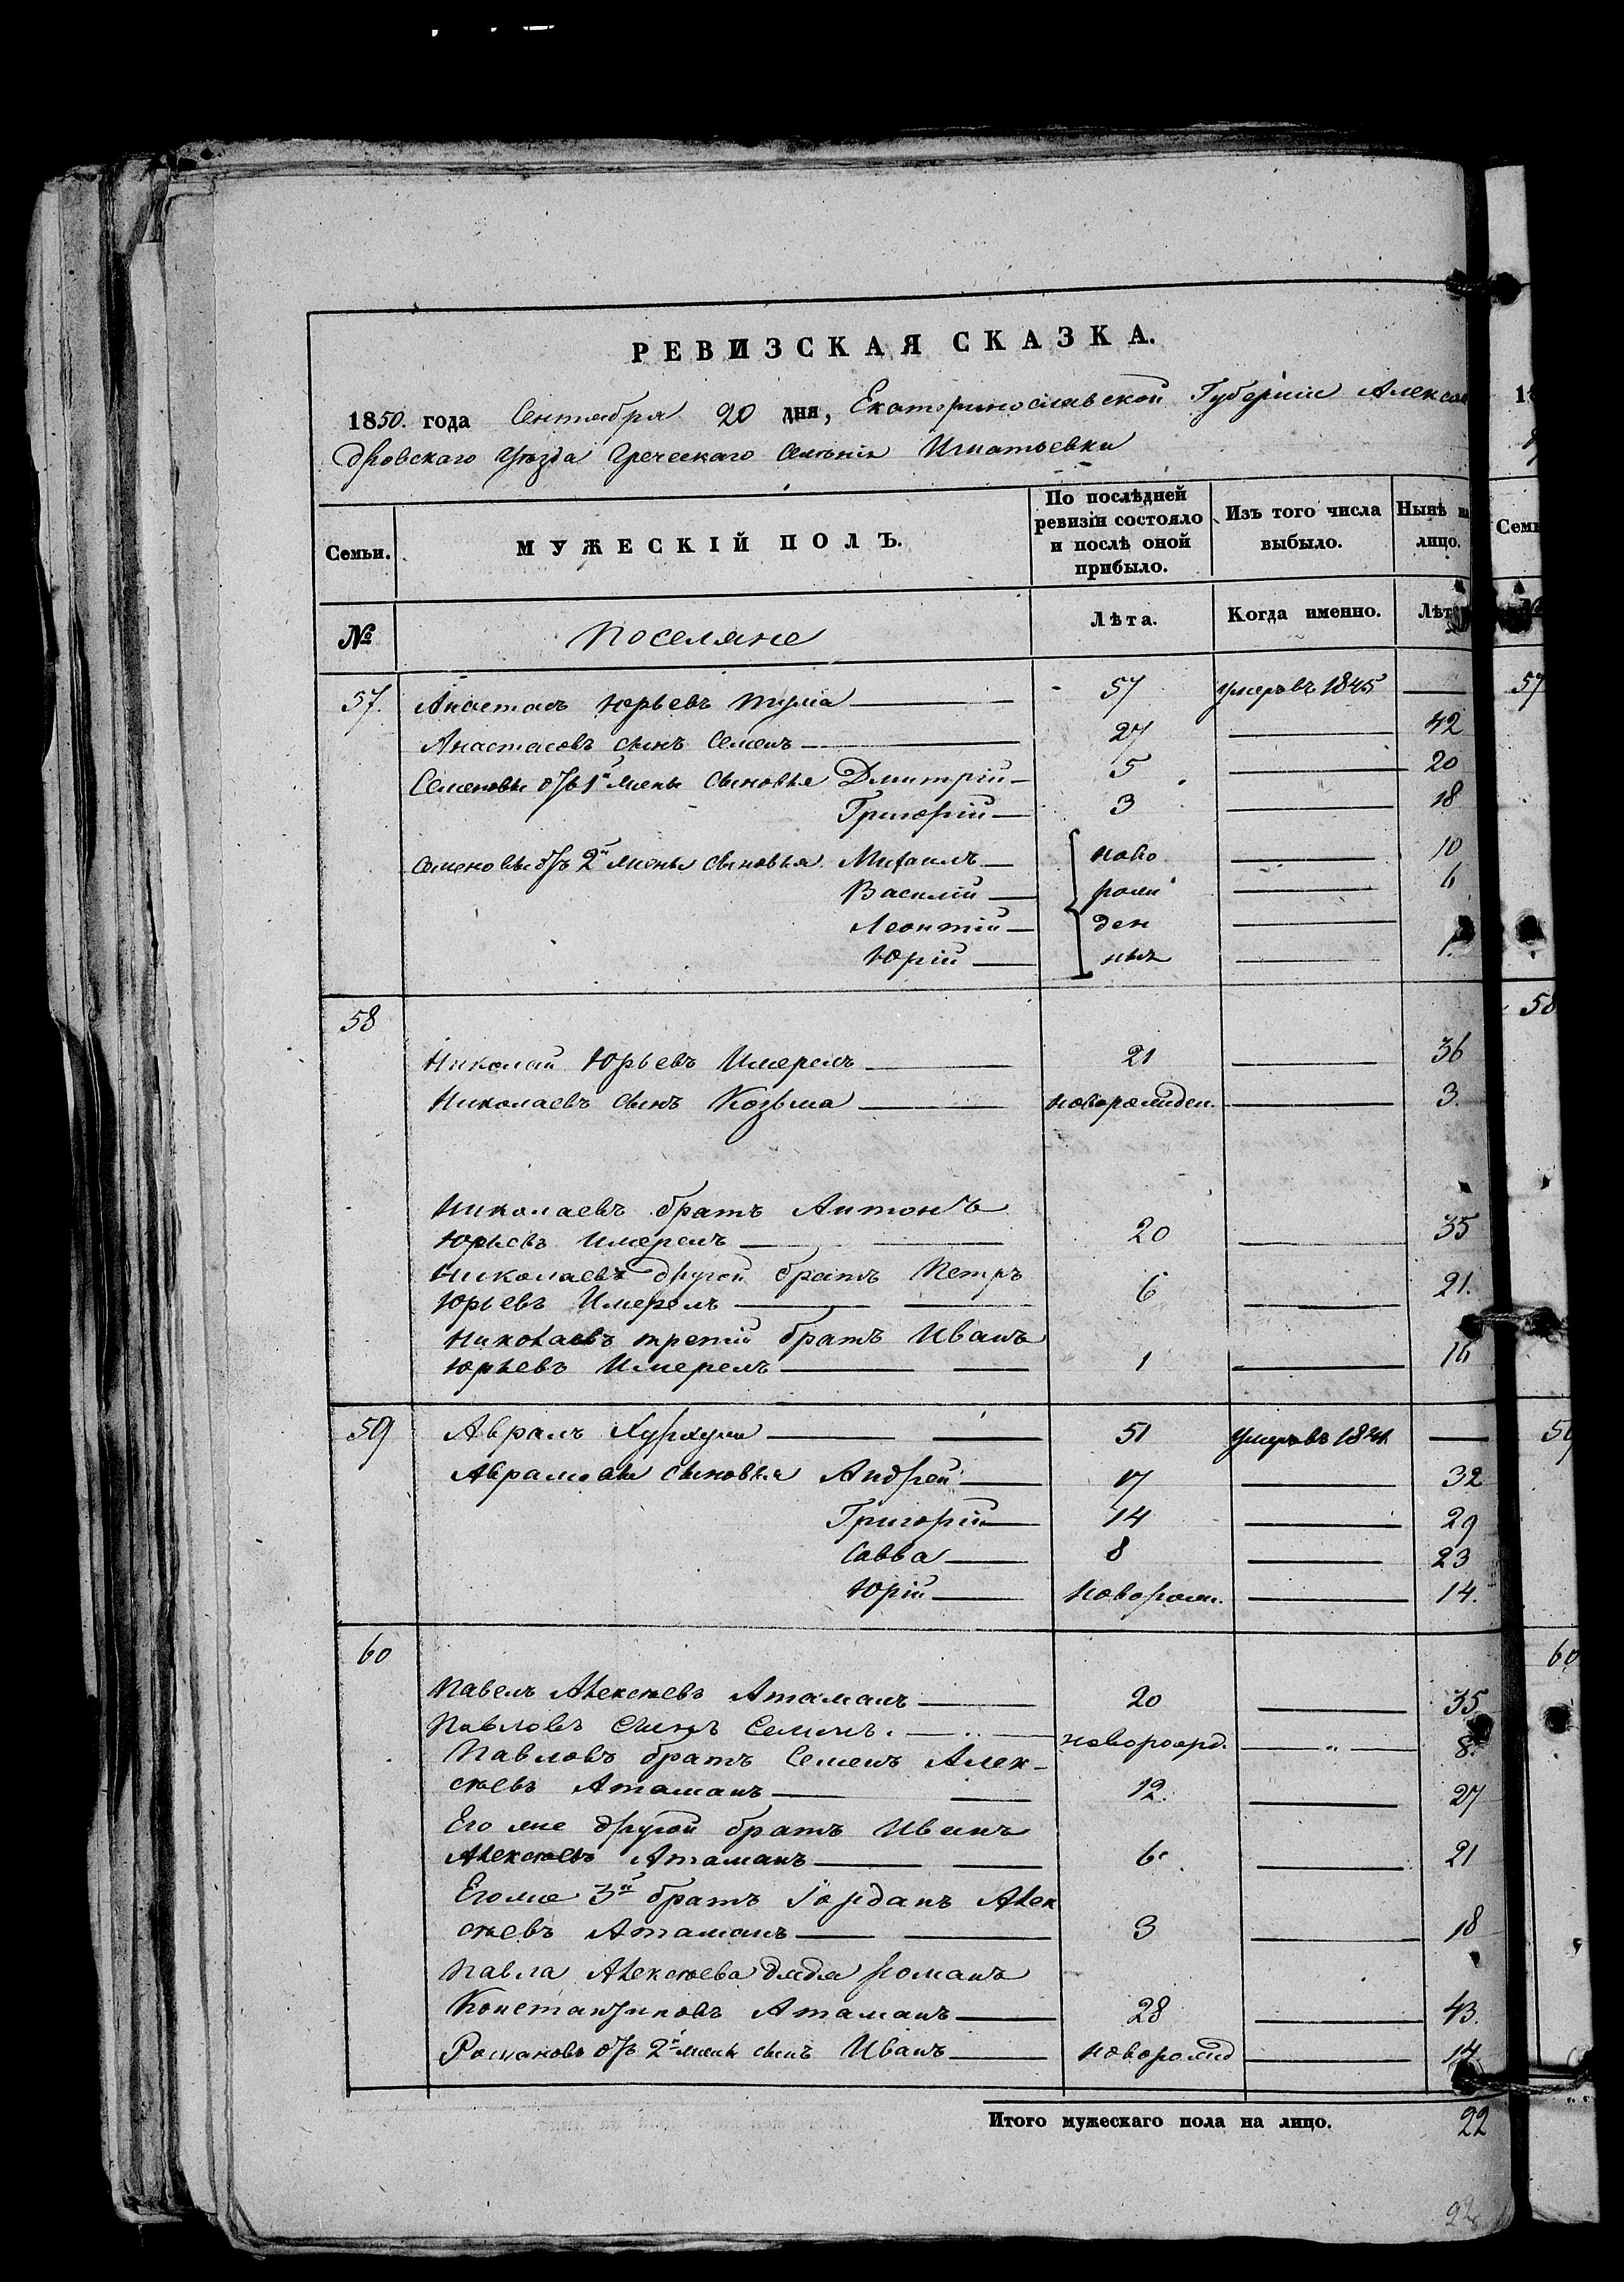 РЕВИЗСКАЯ СКАЗКА.
1850. года Сентября 20 дня, Екатеринославской Губерніи Алексан
дровскаго Уѣзда Греческаго Селенія Игнатьевки
Семьи. МУЖЕСКІЙ ПОЛЪ. По послѣдней ревизіи состояло и послѣ оной прибыло. Изъ того числа выбыло. Нынѣ на лицо.
№ Поселяне Лѣта. Когда именно. Лѣта
57. Анастасъ Юрьевъ 57 умеръ въ 1845
Анастасовъ сынъ Семенъ 27 42
Семеновы отъ 1й жены сыновья Дмитрій 5 20
Григорій 3 18
Семеновы отъ 2й жены сыновья Михаилъ ново 10
Василій рожі 6
Леонтій ден
Юрій ныя 1.
58
Николай Юрьевъ Имерель 21 36
Николаевъ сынъ Козьма новорожден. 3.
Николаевъ братъ Антонъ
Юрьевъ Имерель 20 35
Николаевъ другой братъ Петръ
Юрьевъ Имерель 6 21.
Николаевъ третій братъ Иванъ
Юрьевъ Имерель 1 16
59 Аврамъ 51 умеръ въ 1841
Аврамовы сыновья Андрей 17 32
Григорій 14 29
Савва 8 23
Юрій новорож. 14.
60
Павелъ Алексѣевъ Атаманъ 20 35
Павловъ сынъ Семенъ. новорожд. „ 8.
Павловъ братъ Семенъ Алек-
сѣевъ Атаманъ 12. 27
Его же другой братъ Иванъ
Алексѣевъ Атаманъ 6. 21
Его же 3й братъ Іорданъ Алек
сѣевъ Атаманъ 3 18
Павла Алексѣева дядя Романъ
Константиновъ Атаманъ 28 43.
Романовъ отъ 2й жены сынъ Иванъ новорожд 14
Итого мужескаго пола на лицо. 22
22
57
58
60